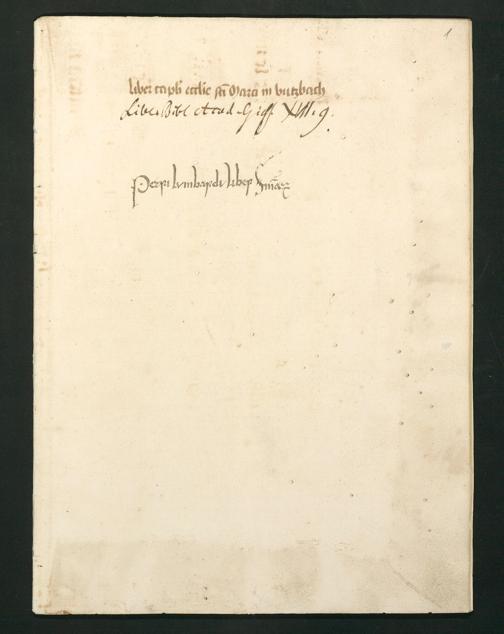 1
liber capli ecclie sci Marci in butzbach
Liber Bibl Acad. Giess XIII. 9.
Petri lumbardi liber Sniaꝝ